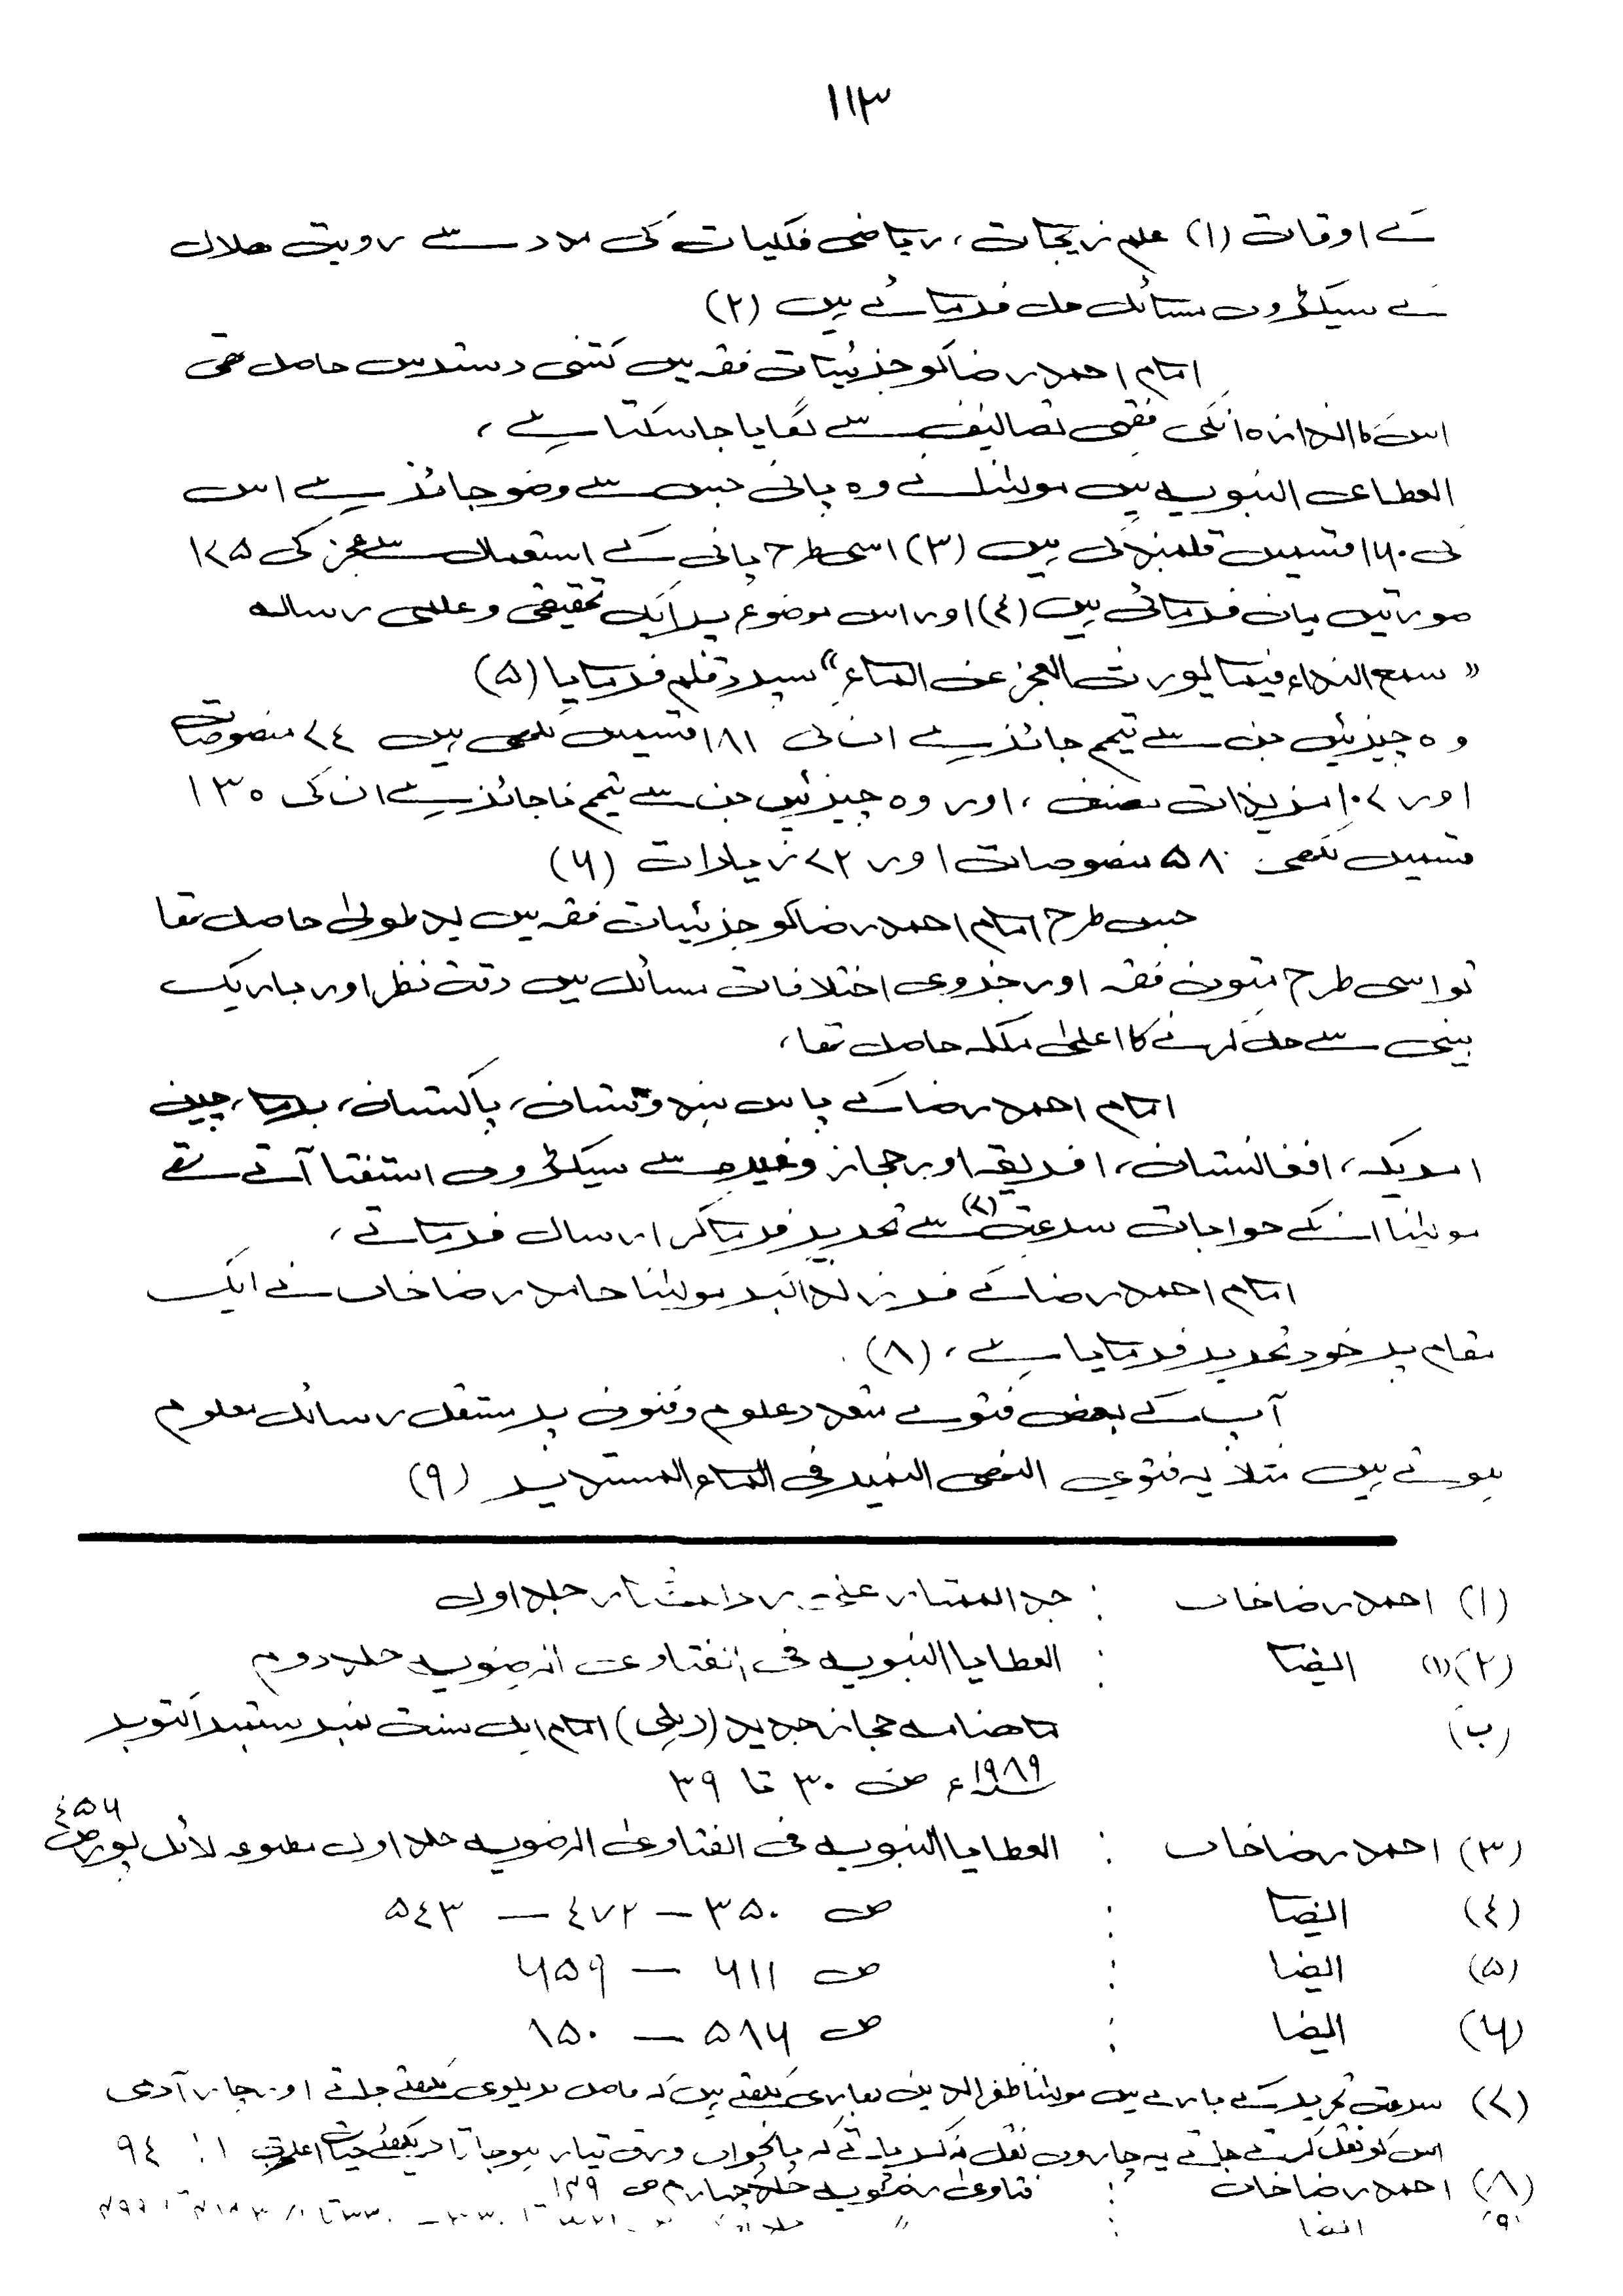 ۱۱۳
کے اوقات (۱) علم زیجات، ریاضی فلکیات کی مدد سے رویت ھلال
کے سیکڑوں مسائل حل فرمائے ہیں (۲)
امام احمد رضا کو جزئیات فقہ میں کتنی دسترس حاصل تھی
اس کا اندازہ انکی فقہی تصالیف سے لگایا جاسکتا ہے،
العطاء النبویہ میں مولٰنا نے وہ پانی جس سے وضو جائز ہے اس
کی ۱۶۰ قسمیں قلمبند کی ہیں (۳) اسی طرح پانی کے استعمال سے عجز کی ۱۷۵
صورتیں بیان فرمائی ہیں (٤) اور اس موضوع پر ایک تحقیقی و علمی رسالہ
"سمع النداء فیما یورث العجز عن الماء" سپرد قلم فرمایا (۵)
وہ چیزیں جن سے تیمم جائز ہے ان کی ۱۸۱ قسمیں لکھی ہیں ۷٤ منصوصات
اور ۱۰۷ مزیدات مصنف، اور وہ چیزیں جن سے تیمم ناجائز ہے ان کی ۱۳۰
قسمیں لکھی ۵۸ منصوصات اور ۷۲ زیادات (۶)
جس طرح امام احمد رضا کو جزئیات فقہ میں ید طولیٰ حاصل تھا
تو اسی طرح متون فقہ اور جزوی اختلافات مسائل میں دقت نظر اور باریک
بینی سے حل کرنے کا اعلیٰ ملکہ حاصل تھا،
امام احمد رضا کے پاس ہندوستان، پاکستان، برما، چین
امریکہ، افغانستان، افریقہ اور حجاز وغیرہ سے سیکڑوں استفتا آتے تھے
مولٰنا ان کے جوابات سرعت (۷) سے تحریر فرما کر ارسال فرماتے،
امام احمد رضا کے فرزند اکبر مولٰنا حامد رضا خاں نے ایک
مقام پر خود تحریر فرمایا ہے، (۸)
آپ کے بعض فتوے متعدد علوم و فنون پر مستقل رسائل معلوم
ہوتے ہیں مثلا یہ فتوی النھی النمیر فی الماء المستدیر (۹)
(۱) احمد رضا خاں : جد الممتار علی رد المختار جلد اول
(۲) (۱) ایضا : العطایا النبویہ فی الفتاوی الرضویہ جلد دوم
(ب) ماھنامہ حجاز جدید (دہلی) امام اہل سنت نمبر ستمبر اکتوبر
۱۹۸۹ء ص ۳۰ تا ۳۹
(۳) احمد رضا خاں : العطایا النبویہ فی الفتاوی الرضویہ جلد اول مطبوعہ لائل پور ص ٤۵۶
(٤) ایضا : ص ۳۵۰ – ٤۷۲ – ۵٤۳
(۵) ایضا : ص ۶۱۱ – ۶۵۹
(۶) ایضا : ص ۵۸۶ – ۱۵۰
(۷) سرعت تحریر کے بارے میں مولٰنا ظفر الدین بہاری لکھتے ہیں کہ فاضل بریلوی لکھتے جاتے اور چار آدمی
اس کو نقل کرتے جاتے یہ چاروں نقل نہ کر پاتے کہ پانچواں ورق تیار ہوجاتا دیکھئے حیات اعلحضرت ۱ : ۹٤
(۸) احمد رضا خاں : فتاوی رضویہ جلد چہارم ص ۱۲۹
(۹) ایضا : "